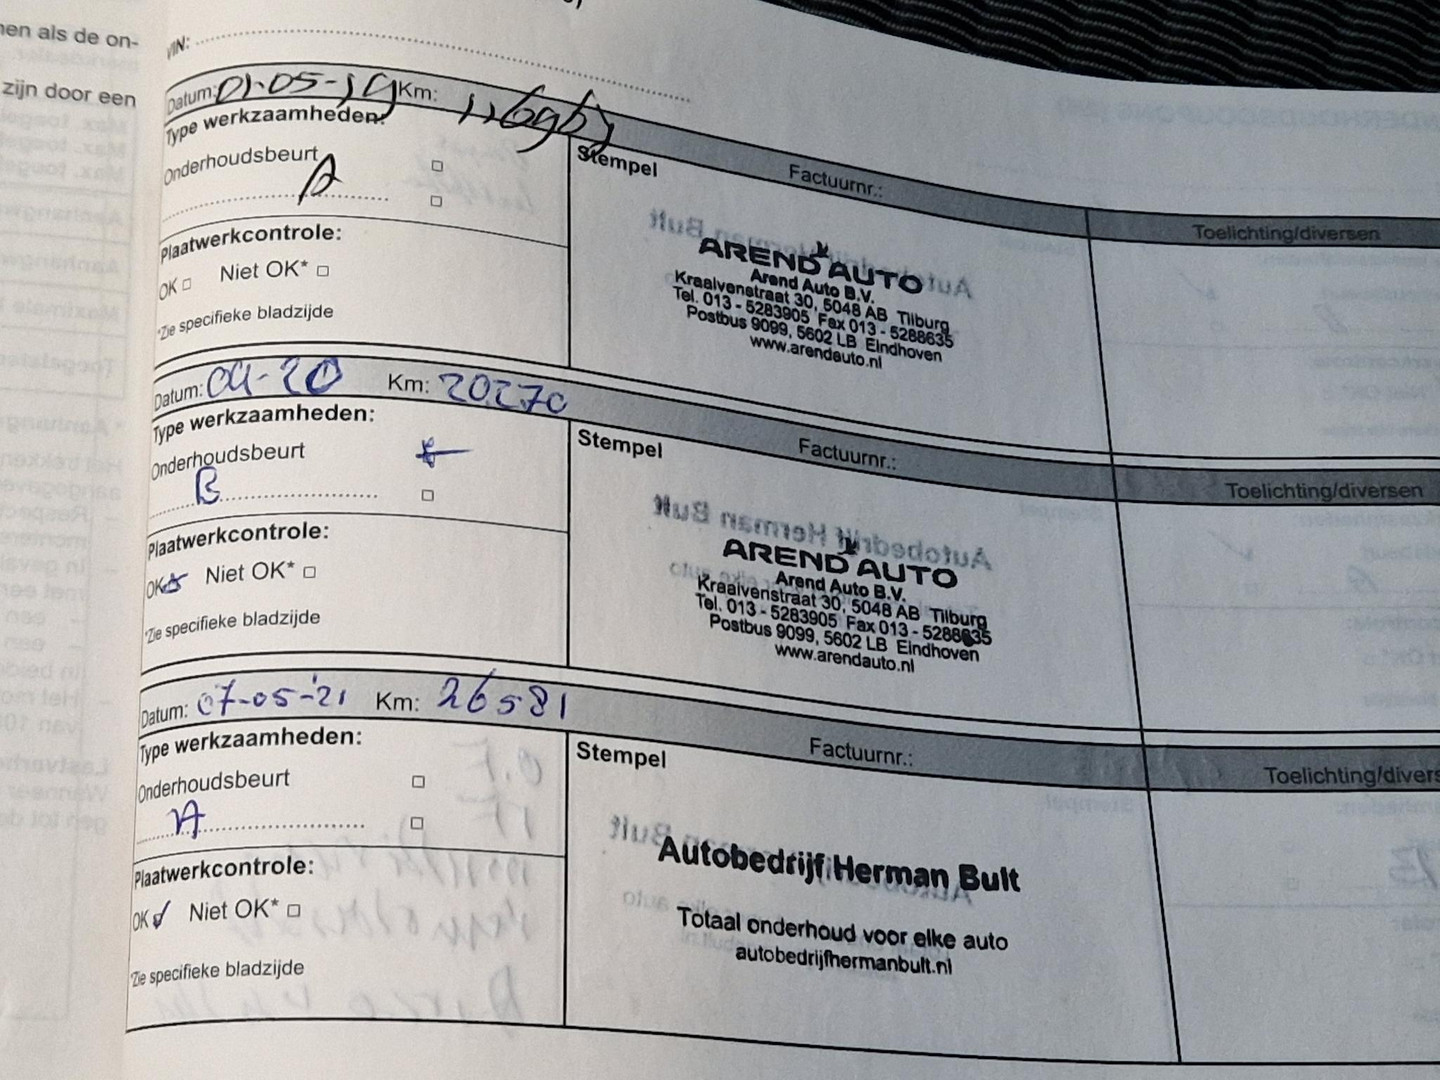 nen als de on-
zijn door een
VIN:
Datum: 01-05-19 Km:
Type werkzaamheden:
Onderhoudsbeurt
A
Plaatwerkcontrole:
OK Niet OK*
*Zie specifieke bladzijde
Stempel Factuurnr.:
Toelichting/diversen
AREND AUTO
Arend Auto B.V.
Kraaivenstraat 30, 5048 AB Tilburg
Tel. 013 - 5283905 Fax 013 - 5288635
Postbus 9099, 5602 LB Eindhoven
www.arendauto.nl
Datum: 04-20 Km: 20270
Type werkzaamheden:
Onderhoudsbeurt
B
Plaatwerkcontrole:
OK Niet OK*
*Zie specifieke bladzijde
Stempel Factuurnr.:
Toelichting/diversen
AREND AUTO
Arend Auto B.V.
Kraaivenstraat 30, 5048 AB Tilburg
Tel. 013 - 5283905 Fax 013 - 5288635
Postbus 9099, 5602 LB Eindhoven
www.arendauto.nl
Datum: 07-05-'21 Km: 26581
Type werkzaamheden:
Onderhoudsbeurt
A
Plaatwerkcontrole:
OK Niet OK*
*Zie specifieke bladzijde
Stempel Factuurnr.:
Toelichting/divers
Autobedrijf Herman Bult
Totaal onderhoud voor elke auto
autobedrijfhermanbult.nl